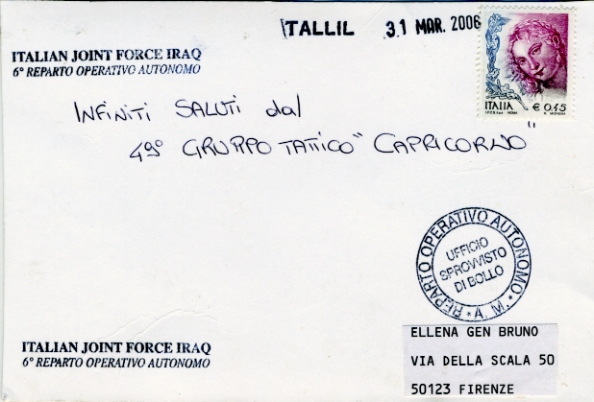 TALLIL 31 MAR. 2006
ITALIAN JOINT FORCE IRAQ
6° REPARTO OPERATIVO AUTONOMO
ITALIA € 0,45
INFINITI SALUTI dal
49° GRUPPO TATTICO "CAPRICORNO"
REPARTO OPERATIVO AUTONOMO
* A. M. *
UFFICIO
SPROVVISTO
DI BOLLO
ITALIAN JOINT FORCE IRAQ
6° REPARTO OPERATIVO AUTONOMO
ELLENA GEN BRUNO
VIA DELLA SCALA 50
50123 FIRENZE